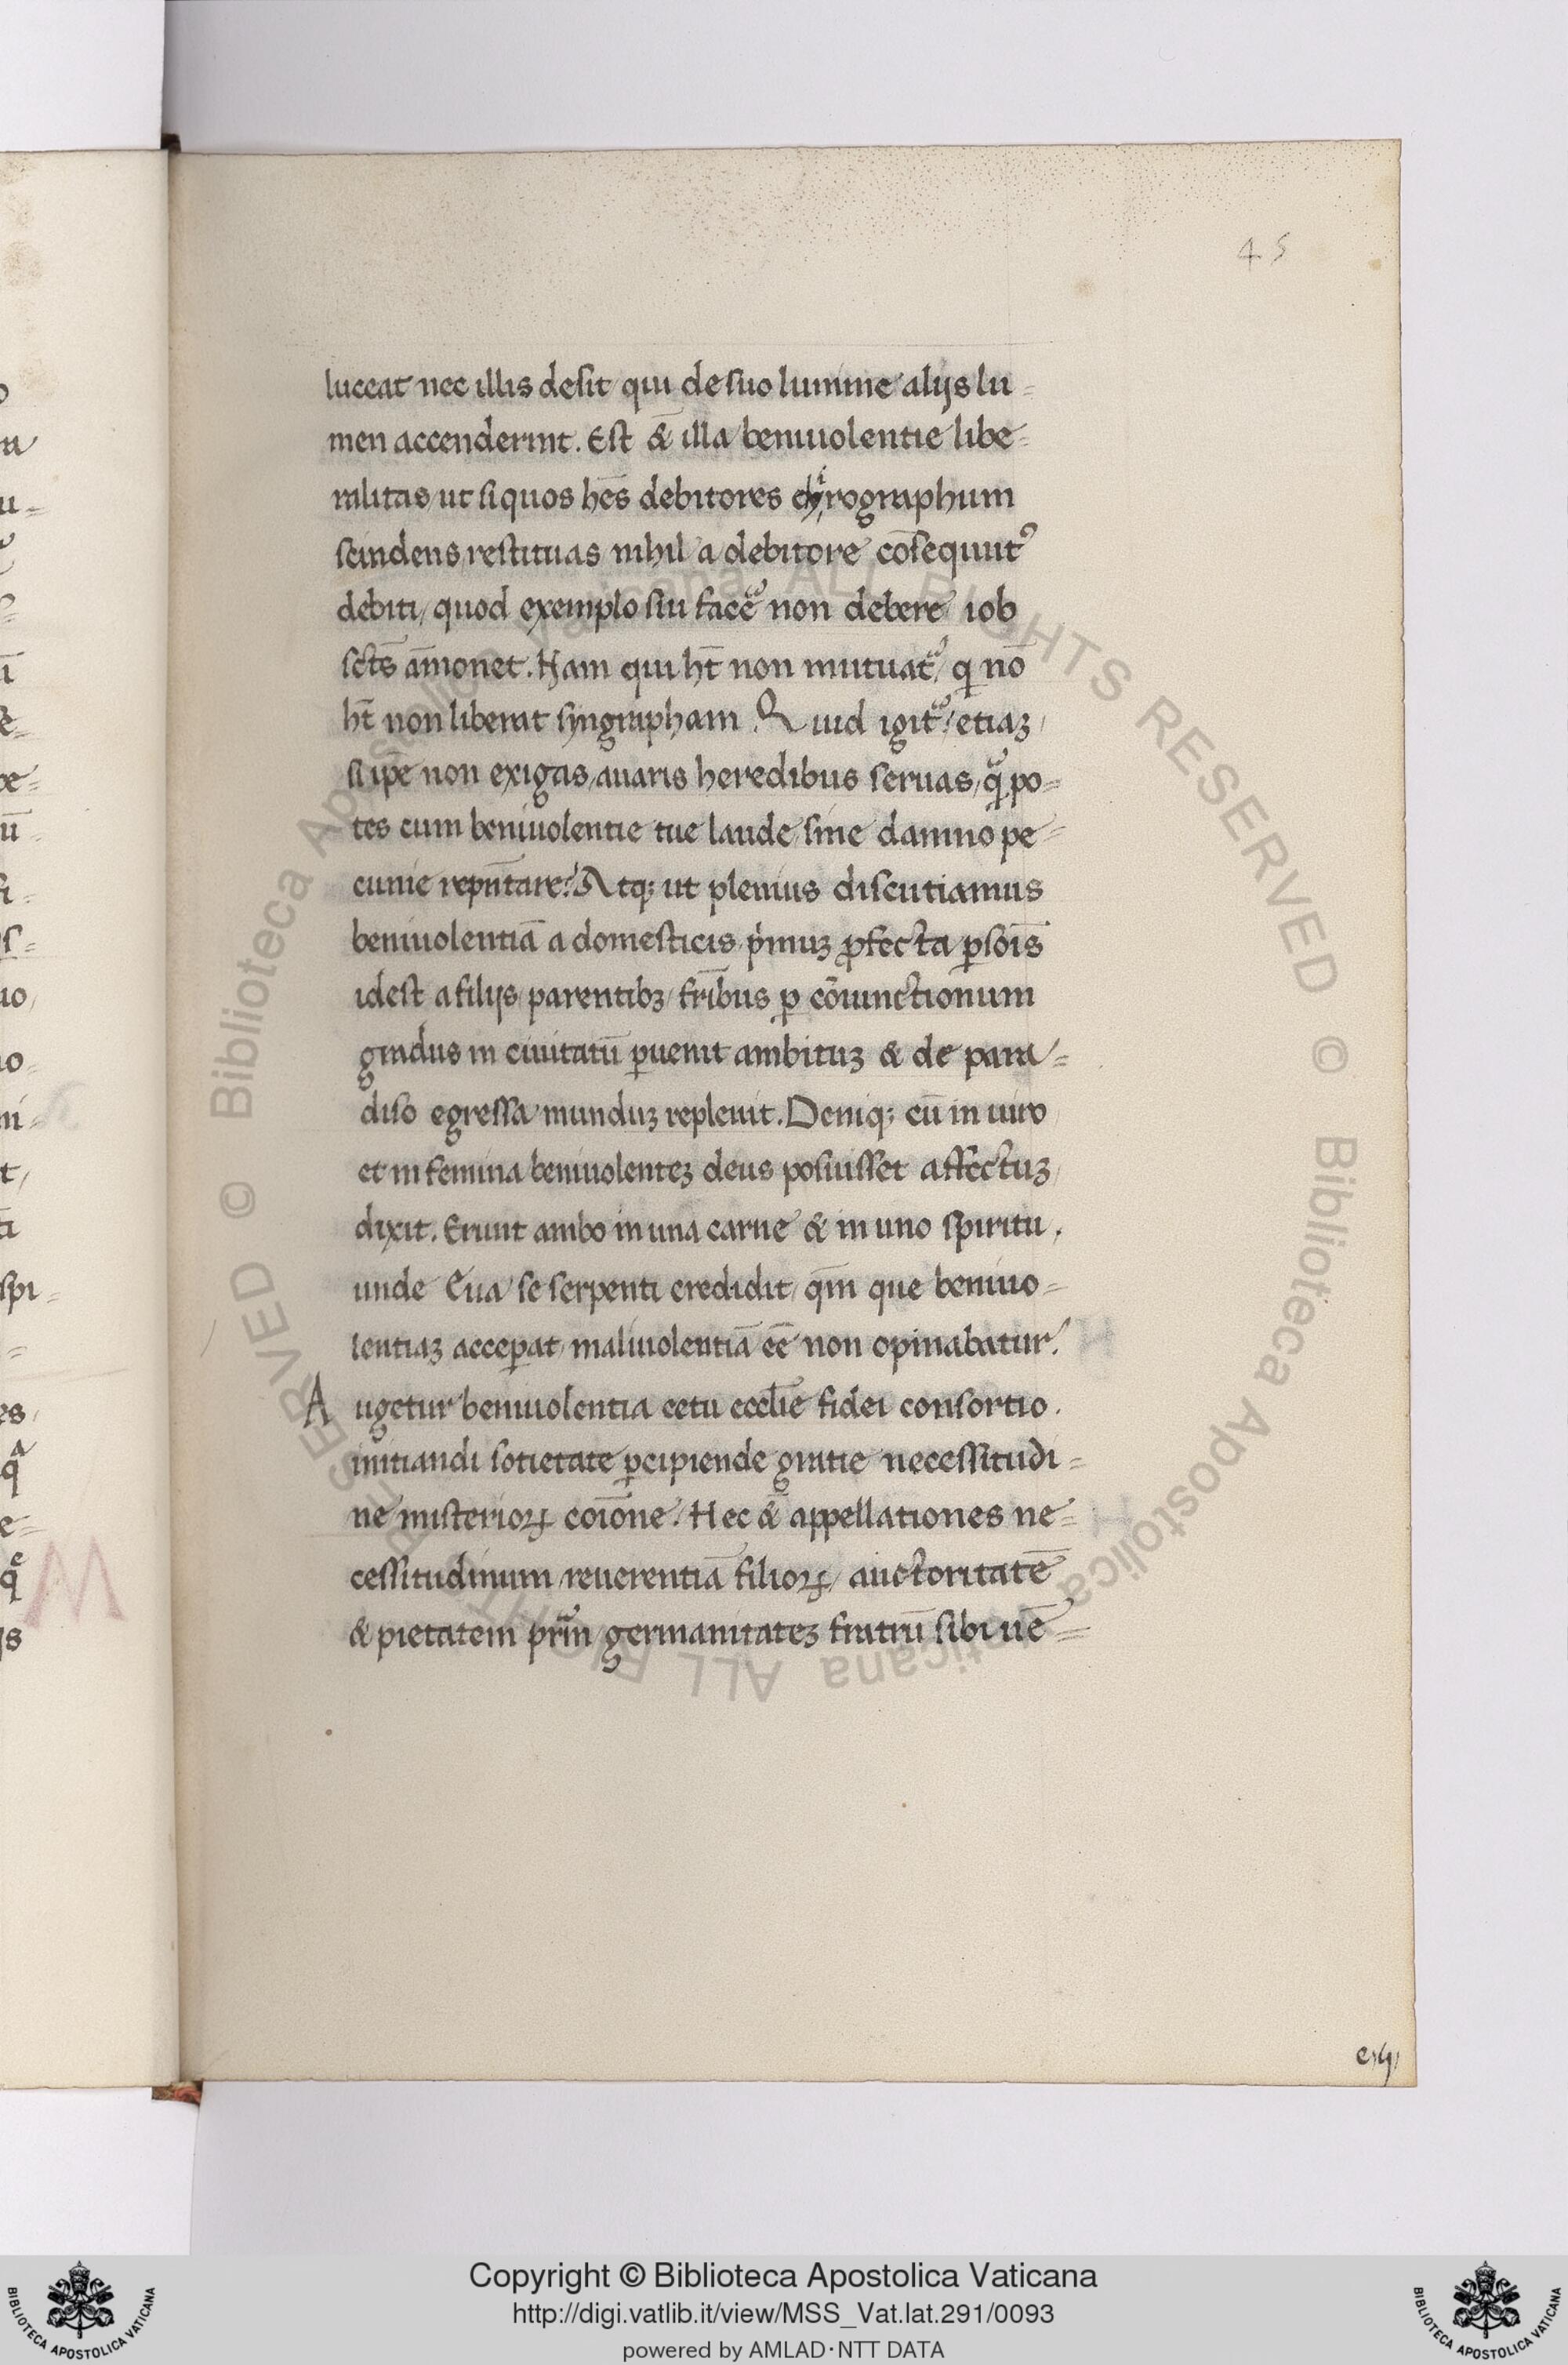 45
luceat nec illis desit qui de suo lumine alijs lu=
men accenderint. Est & illa beniuolentie libe=
ralitas ut si quos hēs debitores chyrographum
scindens restituas nihil a debitore cōsequut⁹
debiti, quod exemplo sui facē non debere iob
sctē āmonet. Nam qui ht̄ non mutuat̄, q nō
ht̄ non liberat syngrapham. Quid igit̄, etiaꝫ
si ip̄e non exigas, auaris heredibus seruas, q̄ po=
tes cum beniuolentie tue laude sine damno pe=
cunie repn̄tare? Atqꝫ ut plenius discutiamus
beniuolentiā a domesticis p̓muꝫ ꝓfecta ꝑsoīs
idest a filijs parentibꝫ fr̄ibus ꝑ cōiunctionum
gradus in ciuitatū ꝑuenit ambituꝫ & de para=
diso egressa munduꝫ repleuit. Deniqꝫ cū in uiro
et in femina beniuolenteꝫ deus posuisset affectuꝫ
dixit. Erunt ambo in una carne & in uno spiritu.
unde Eua se serpenti credidit, qm̄ que beniuo=
lentiaꝫ acceꝑat maliuolentiā eē non opinabatur.
Augetur beniuolentia cetu eccl̄ie fidei consortio.
initiandi sotietate ꝑcipiende gratie necessitudi=
ne misterioꝝ coīone. Hec &̄ appellationes ne=
cessitudinum, reuerentiā filioꝝ, auctoritatē
& pietatem pr̄m germanitateꝫ fratrū sibi uē=
© Biblioteca Apostolica Vaticana ALL RIGHTS RESERVED
© Biblioteca Apostolica Vaticana ALL RIGHTS RESERVED
Copyright © Biblioteca Apostolica Vaticana
http://digi.vatlib.it/view/MSS_Vat.lat.291/0093
powered by AMLAD·NTT DATA
BIBLIOTECA APOSTOLICA VATICANA
BIBLIOTECA APOSTOLICA VATICANA